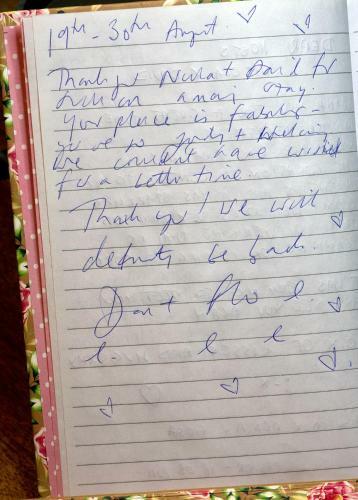 19th - 30th August.
Thank you Nicola + David for
such an amazing stay.
Your place is fabulous -
you're so lovely + welcoming
We couldn't have wished
for a better time.
Thank you! We will
definitely be back.